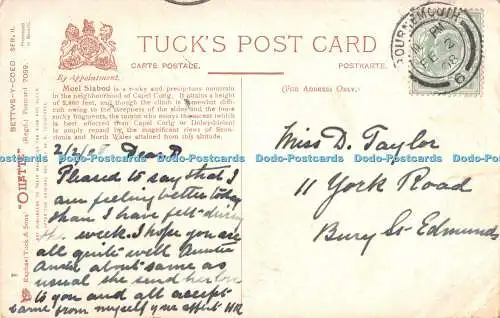 TUCK'S POST CARD
CARTE POSTALE.
POSTKARTE.
By Appointment.
(FOR ADDRESS ONLY.)
Moel Siabod is a rocky and precipitous mountain
in the neighbourhood of Capel Curig. It attains a height
of 2,860 feet, and though the climb is somewhat diffi-
cult owing to the steepness of the sides and the
rocky fragments, the tourist who essays the ascent (which
is best effected from Capel Curig or Dolwyddelan)
is amply repaid by the magnificent views of Snow-
donia and North Wales attained from this altitude.
BETTWS-Y-COED. SER. II.
Raphael Tuck & Sons' "OILETTE" (Regd.) Postcard 7099.
BOURNEMOUTH
FE 2
08
6
2/2/08 Dear D.
Pleased to say that I
am feeling better today
than I have felt during
the week. I hope you are
all quite well Auntie
Annie about same as
usual she send her love
to you and all accept
same from myself your affect HR
Miss D. Taylor
11 York Road
Bury St Edmunds
www.delcampe.net